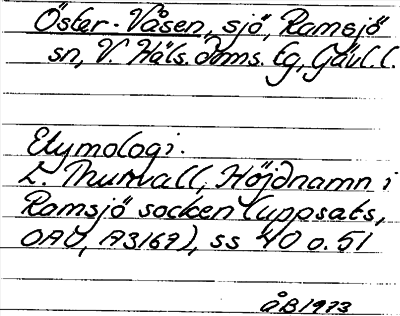 Öster-Våsen, sjö, Ramsjö
sn, V. Häls. doms. tg, Gävl. l.
Etymologi.
L. Thunvall, Höjdnamn i
Ramsjö socken (uppsats,
OAU, A3169), ss 40 o. 51
ÅB 1973